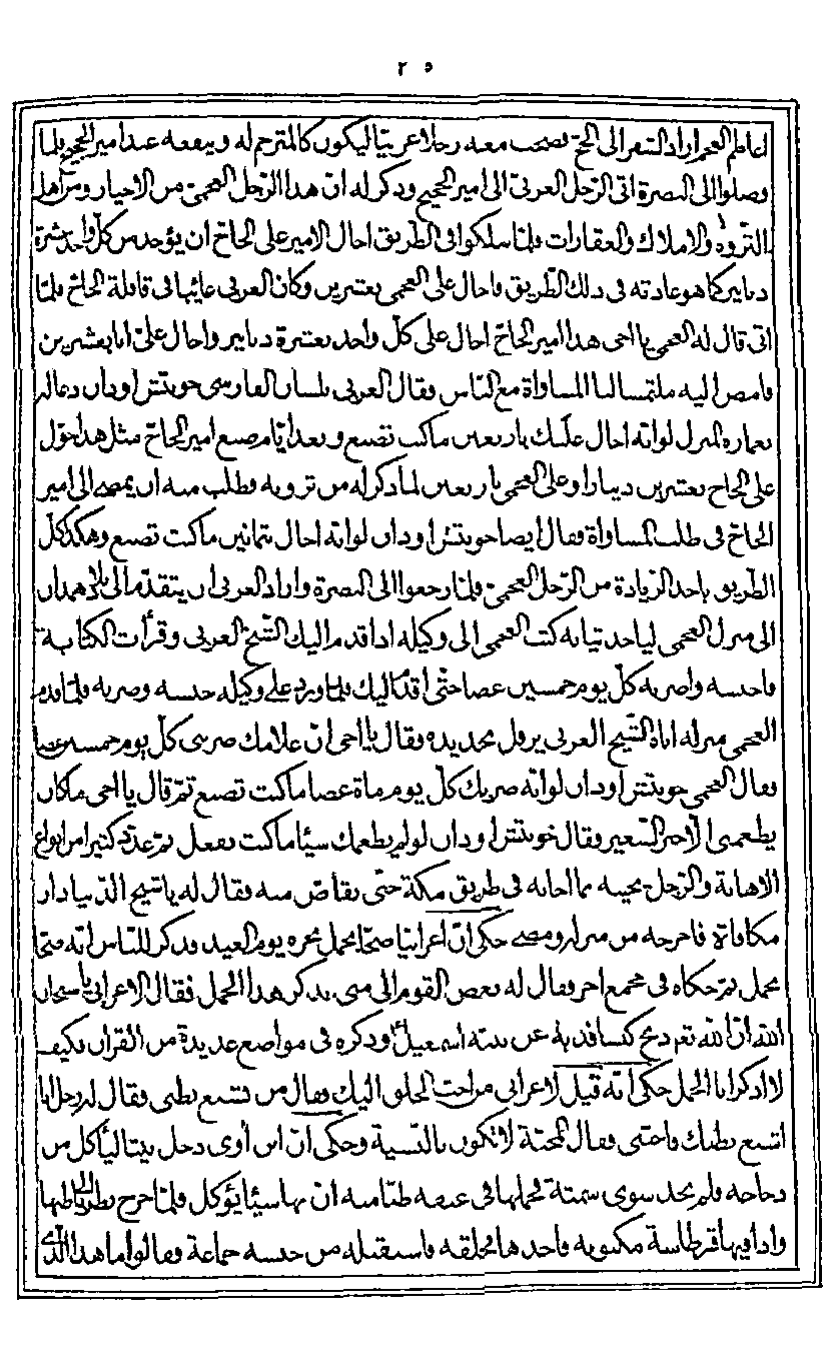 ٢٥
اعاظم العجم اراد السفر الى الحج فصحب معه رجلا عربيا ليكون كالمترجم له وينفعه عند امير الحجيج فلما
وصلوا الى البصرة اتى الرجل العربى الى امير الحجيج وذكر له ان هذا الرجل العجمى من الاخيار ومن اهل
الثروة والاملاك والعقارات فلما سلكوا فى الطريق احال الامير على الحاج ان يؤخذ من كل واحد عشرة
دنانير كما هو عادته فى ذلك الطريق واحال على العجمى بعشرين وكان العربى غائبا فى قافلة الحاج فلما
اتى قال له العجمى يا اخى هذا امير الحاج احال على كل واحد بعشرة دنانير واحال علىّ انا بعشرين
فامض اليه ملتمسا لنا المساواة مع الناس فقال العربى بلسان الفارسى خوبتر او دان
بعد المنزل لو انه احال عليك باربعين ما كنت تصنع وبعد ايام صنع امير الحاج مثل هذا حوّل
على الحاج بعشرين دينارا وعلى العجمى باربعين لما ذكر له من ثروته فطلب منه ان يمضى الى امير
الحاج فى طلب المساواة فقال ايضا خوبتر او دان لو انه احال بثمانين ما كنت تصنع وهكذا كل
الطريق ياخذ الزيادة من الرجل العجمى فلما رجعوا الى البصرة واراد العربى ان يتقدم الى بلاد همدان
الى منزل العجمى لياخذ ثيابه كتب العجمى الى وكيله اذا قدم اليك الشيخ العربى وقرأت الكتابة
فاحبسه واضربه كل يوم خمسين عصا حتى اقدم اليك فلما ورد على وكيله حبسه وضربه فلما قدم
العجمى منزله اتاه الشيخ العربى يرفل بحديده وقال يا اخى ان غلامك ضربنى كل يوم خمسين عصا
فقال العجمى خوبتر او دان لو انه ضربك كل يوم مأة عصا ما كنت تصنع ثم قال يا اخى ما كان
يطعمنى الا خبز الشعير فقال خوبتر او دان لو لم يطعمك شيئا ما كنت تفعل ثم عدّد كثيرا من انواع
الاهانة والرجل يجيبه بما اجابه فى طريق مكة حتى تقاص منه فقال له يا شيخ الدنيا دار
مكافاة فاخرجه من منزله ومضى حكى انّ اعرابيا ضحّا بجمل نحره يوم العيد وذكر للناس انه ضحّا
بجمل ثم حكاه فى مجمع اخر فقال له بعض القوم الى متى تذكر هذا الجمل فقال الاعرابى يا سبحان
الله ان الله تع ذبح كبشا فدية عن نبيه اسمعيل ع وذكره فى مواضع عديدة من القران فكيف
لا اذكر انا الجمل حكى انه قيل لاعرابى من احب الخلق اليك فقال من تشبع بطنى فقال له رجل انا
اشبع بطنك فاحبنى فقال المحبة لا تكون بالنسية وحكى ان ابن اوى دخل بيتا لياكل من
دجاجه فلم يجد سوى فحملها فى عنقه ظنا منه ان بها شيئا يؤكل فلما خرج نظر الى باطنها
واذا فيها قرطاسة مكتوبة فاخذها بحلقه فاستقبله من جنسه جماعة فقالوا ما هذا الذى